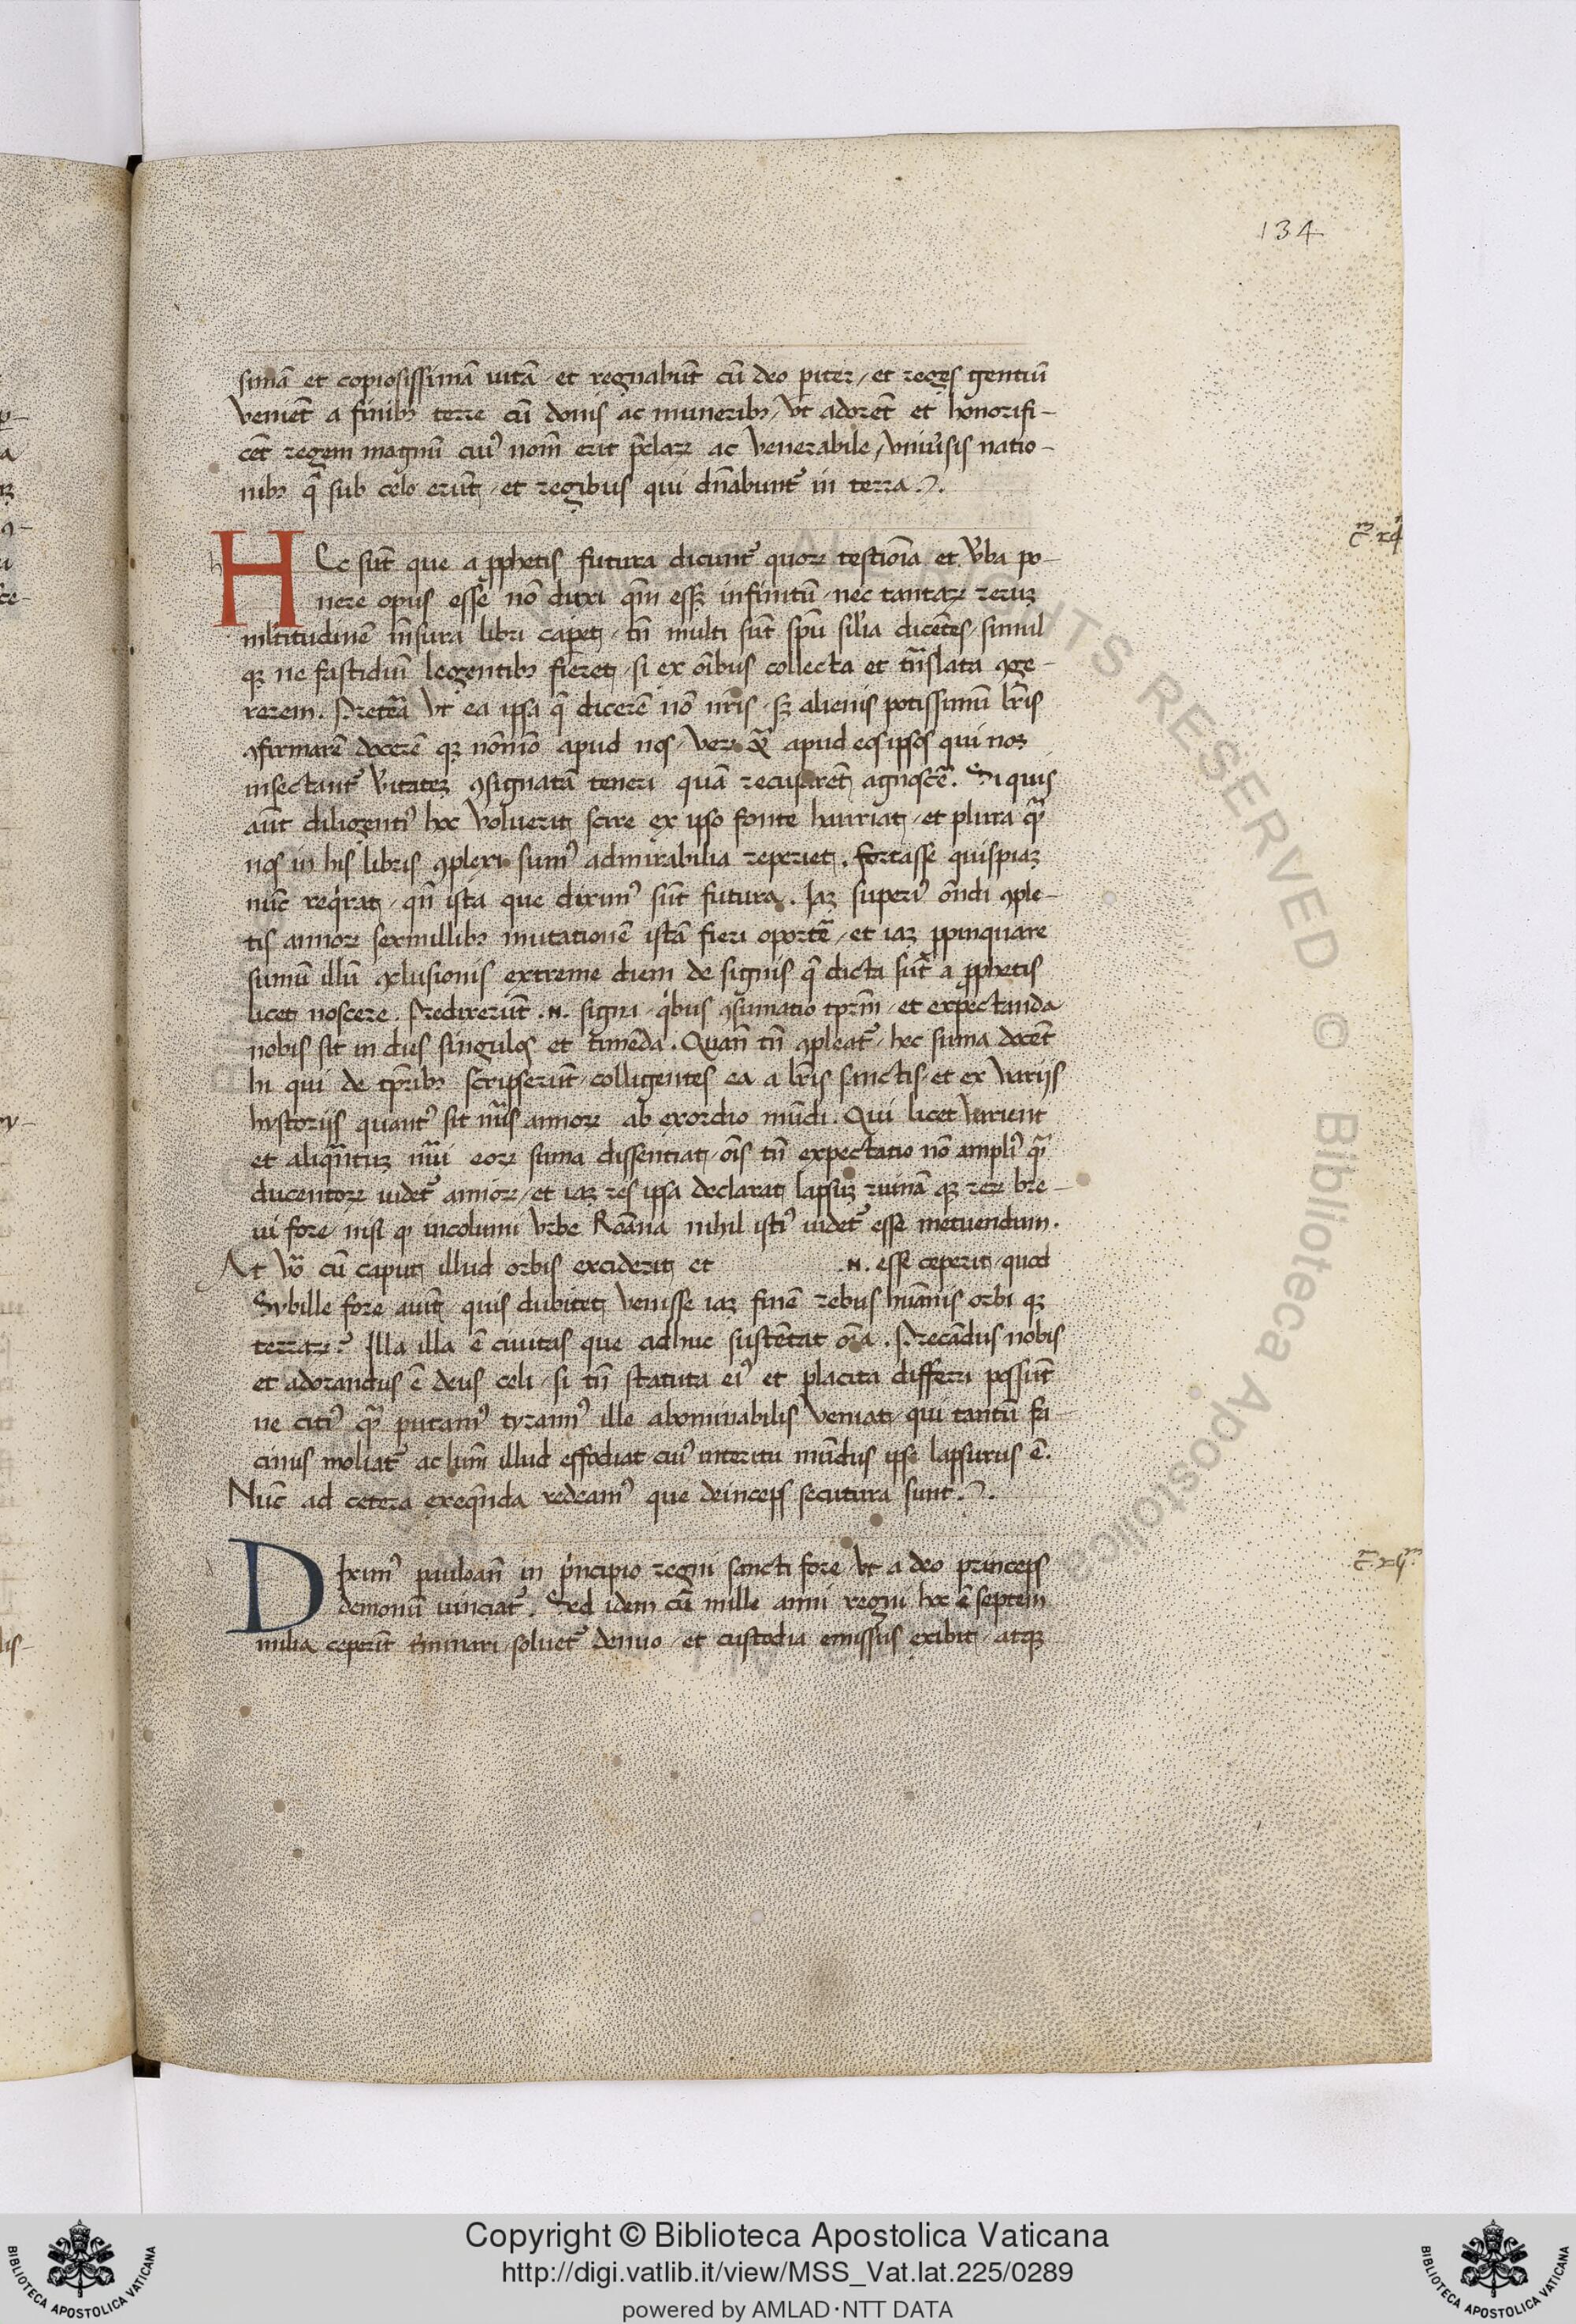 134
simā et copiosissimā uitā et regnabūt cū deo pariter / et reges gentiū
veniēt a finibꝫ terre cū donis ac muneribꝫ / vt adorēt et honorifi-
cēt regem magnū cuiꝰ nom̄ erit p̄claꝝ ac venerabile / vniũsis natio-
nibꝫ q̄ sub celo erūt et regibus qui dn̄abunt᷑ in terra.
HEc sūt que a ꝓphetis futura dicunt᷑ quoꝝ testiōia et v̄ba po-
nere opus esse nō duxi qm̄ essꝫ infinitū nec tantaꝝ reruꝫ
mltitudinē m̄sura libri caperꝫ tn̄ multi sūt spū sil̓ia dicētes simul
qꝫ ne fastidiū legentibꝫ fieret si ex oībus collecta et tn̄slata ꝯge-
rerem. Pretēa vt ea ipsa q̄ dicerē nō nr̄is sꝫ alienis potissimū lr̄is
ꝯfirmarē docerē qꝫ nōmō apud nos veꝝ apud eos ipsos qui nos
insectant᷑ v̓itateꝫ ꝯsignatā teneri quā recusarēt agnoscē. Si quis
aūt diligentiꝰ hoc voluerit scire ex ipso fonte hauriat et plura q̄
nos in his libris ꝯplexi sumꝰ admirabilia reperiet. Fortasse quispiaꝫ
nūc req̓rat qn̄ ista que diximꝰ sūt futura. Iaꝫ superiꝰ on̄di ꝯple-
tis annoꝝ sexmillibꝫ mutationē istā fieri oportē et iaꝫ ꝓpinquare
sumū illū ꝯclusionis extreme diem de signis q̄ dicta sūt a ꝓphetis
licet noscere. Predixerūt .N. signa q̓bus ꝯsumatio tp̄rm et expectanda
nobis sit in dies singulos et timēda. Quan̄ tn̄ ꝯpleat᷑ hec suma docēt
hi qui de tp̄ribꝫ scripserūt colligentes ea a lr̄is sanctis et ex variis
hystoriis quantꝰ sit nūs annoꝝ ab exordio mūdi. Qui licet varient
et aliqn̄tuꝫ nūi eoꝝ suma dissentiat oīs tn̄ expectatio nō ampliꝰ q̄
ducentoꝝ uidet᷑ annoꝝ et iaꝫ res ipsa declarat lapsuꝫ ruinā qꝫ reꝝ bre-
ui fore nisi ꝙ incolumi vrbe Roāna nihil istiꝰ uidet᷑ esse metuendum.
At v̓o cū caput illud orbis exciderit et .N. esse ceperit quod
Sybille fore aiūt quis dubitet venisse iaꝫ finē rebus hūanis orbi qꝫ
terraꝝ? Illa illa ē ciuitas que adhuc sustētat oīa. Precādus nobis
et adorandus ē deus celi si tn̄ statuta eiꝰ et placita differri possūt
ne citiꝰ q̄ putamꝰ tyrannꝰ ille abominabilis veniat qui tantū fa-
cinus moliat᷑ ac lum̄ illud effodiat cuiꝰ interitu mūdus ipse lapsurus ē.
Nūc ad cetera exeqn̄da redeamꝰ que deinceps secutura sunt.
Diximꝰ pauloan̄ in p̓ncipio regni sancti fore vt a deo princeps
demonū uinciat᷑. Sed idem cū mille anni regni hoc ē septem
milia ceperīt t̓minari soluet᷑ denuo et custodia emissus exibit atqꝫ
© Biblioteca Apostolica
ALL RIGHTS RESERVED
Copyright © Biblioteca Apostolica Vaticana
http://digi.vatlib.it/view/MSS_Vat.lat.225/0289
powered by AMLAD·NTT DATA
BIBLIOTECA APOSTOLICA VATICANA
BIBLIOTECA APOSTOLICA VATICANA